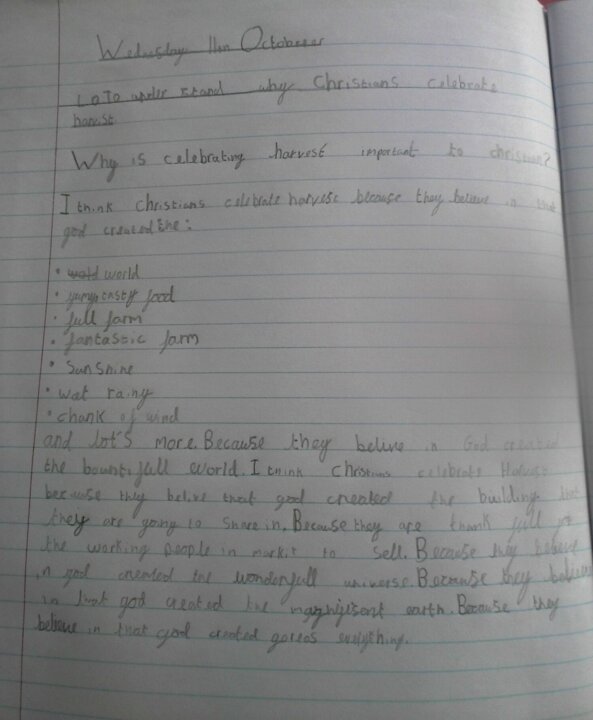 Wednsday 11th Octobeer
LO To under stand why Christians celebrate
harvest.
Why is celebrating harvest important to christian?
I think christians celebrate harvest because they believe in that
god created the:
• wold world
• food
• full farm
• fantastic farm
• Sun shine
• wat rainy
• chank of wind
and lot's more. Because they belive in God created
the bountifull world. I think Christians celebrate Harvest
because they belive that god created the building that
they are going to share in. Because they are thank full for
the working people in markit to sell. Because they believe
in god created the wonderfull universe. Because they believe
in that god created the magnifisont earth. Because they
believe in that god created everything.